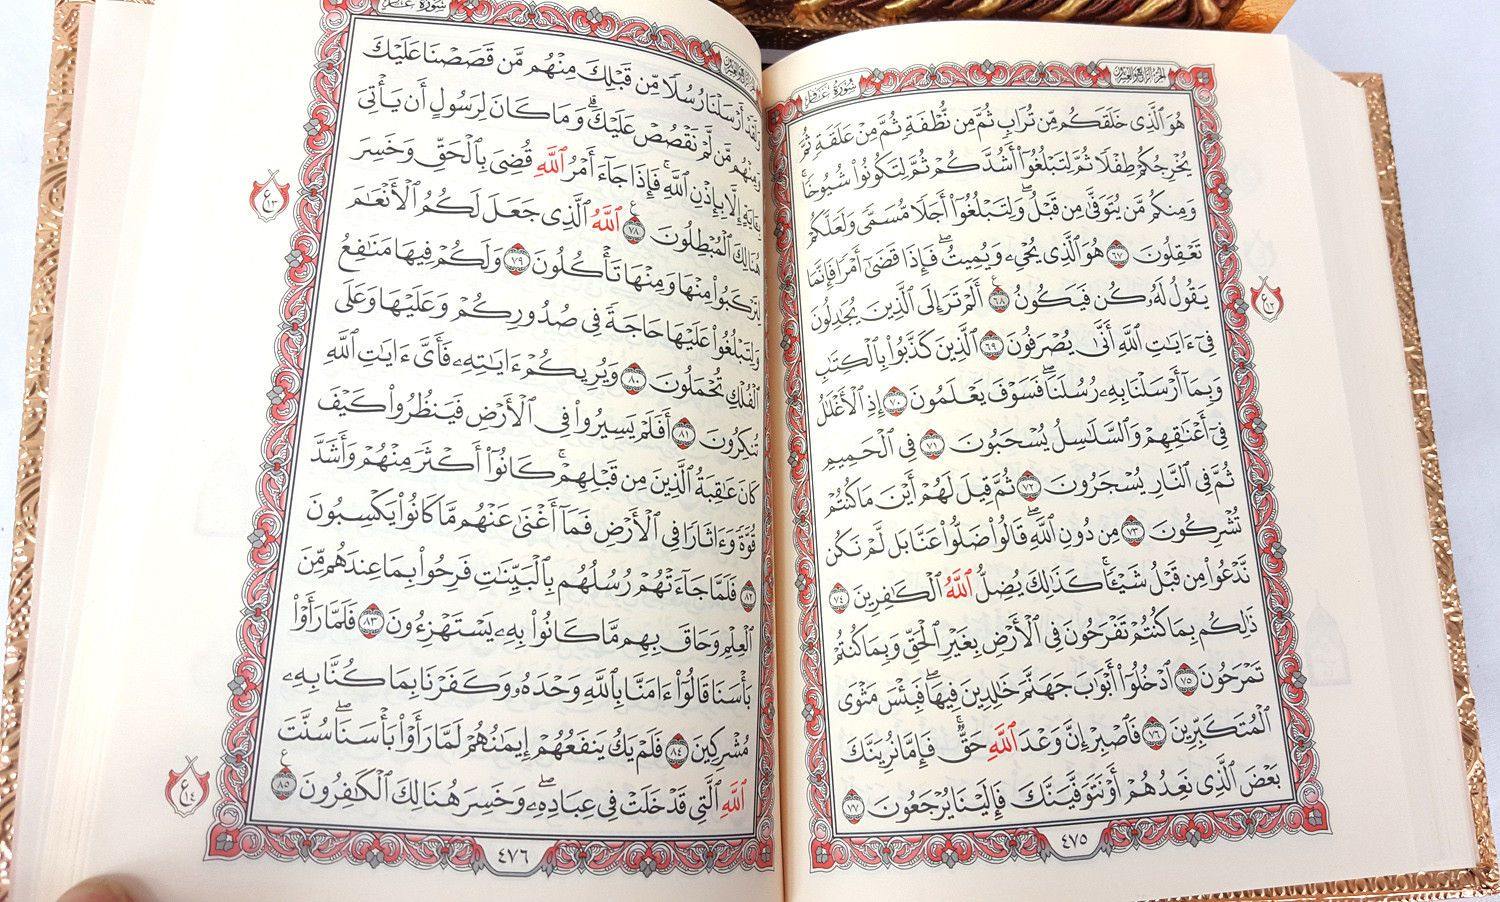 سُورَةُ غَافِرٍ
الجزء الرابع والعشرون
هُوَ ٱلَّذِى خَلَقَكُم مِّن تُرَابٍ ثُمَّ مِن نُّطْفَةٍ ثُمَّ مِنْ عَلَقَةٍ ثُمَّ
يُخْرِجُكُمْ طِفْلًا ثُمَّ لِتَبْلُغُوٓا۟ أَشُدَّكُمْ ثُمَّ لِتَكُونُوا۟ شُيُوخًا ۚ
وَمِنكُم مَّن يُتَوَفَّىٰ مِن قَبْلُ ۖ وَلِتَبْلُغُوٓا۟ أَجَلًا مُّسَمًّى وَلَعَلَّكُمْ
تَعْقِلُونَ ٦٧ هُوَ ٱلَّذِى يُحْىِۦ وَيُمِيتُ ۖ فَإِذَا قَضَىٰٓ أَمْرًا فَإِنَّمَا
يَقُولُ لَهُۥ كُن فَيَكُونُ ٦٨ أَلَمْ تَرَ إِلَى ٱلَّذِينَ يُجَـٰدِلُونَ
فِىٓ ءَايَـٰتِ ٱللَّهِ أَنَّىٰ يُصْرَفُونَ ٦٩ ٱلَّذِينَ كَذَّبُوا۟ بِٱلْكِتَـٰبِ
وَبِمَآ أَرْسَلْنَا بِهِۦ رُسُلَنَا ۖ فَسَوْفَ يَعْلَمُونَ ٧٠ إِذِ ٱلْأَغْلَـٰلُ
فِىٓ أَعْنَـٰقِهِمْ وَٱلسَّلَـٰسِلُ يُسْحَبُونَ ٧١ فِى ٱلْحَمِيمِ
ثُمَّ فِى ٱلنَّارِ يُسْجَرُونَ ٧٢ ثُمَّ قِيلَ لَهُمْ أَيْنَ مَا كُنتُمْ
تُشْرِكُونَ ٧٣ مِن دُونِ ٱللَّهِ ۖ قَالُوا۟ ضَلُّوا۟ عَنَّا بَل لَّمْ نَكُن
نَّدْعُوا۟ مِن قَبْلُ شَيْـًٔا ۚ كَذَٰلِكَ يُضِلُّ ٱللَّهُ ٱلْكَـٰفِرِينَ ٧٤
ذَٰلِكُم بِمَا كُنتُمْ تَفْرَحُونَ فِى ٱلْأَرْضِ بِغَيْرِ ٱلْحَقِّ وَبِمَا كُنتُمْ
تَمْرَحُونَ ٧٥ ٱدْخُلُوٓا۟ أَبْوَٰبَ جَهَنَّمَ خَـٰلِدِينَ فِيهَا ۖ فَبِئْسَ مَثْوَى
ٱلْمُتَكَبِّرِينَ ٧٦ فَٱصْبِرْ إِنَّ وَعْدَ ٱللَّهِ حَقٌّ ۚ فَإِمَّا نُرِيَنَّكَ
بَعْضَ ٱلَّذِى نَعِدُهُمْ أَوْ نَتَوَفَّيَنَّكَ فَإِلَيْنَا يُرْجَعُونَ ٧٧
٤٧٥
سُورَةُ غَافِرٍ
وَلَقَدْ أَرْسَلْنَا رُسُلًا مِّن قَبْلِكَ مِنْهُم مَّن قَصَصْنَا عَلَيْكَ
وَمِنْهُم مَّن لَّمْ نَقْصُصْ عَلَيْكَ ۗ وَمَا كَانَ لِرَسُولٍ أَن يَأْتِىَ
بِـَٔايَةٍ إِلَّا بِإِذْنِ ٱللَّهِ ۚ فَإِذَا جَآءَ أَمْرُ ٱللَّهِ قُضِىَ بِٱلْحَقِّ وَخَسِرَ
هُنَالِكَ ٱلْمُبْطِلُونَ ٧٨ ٱللَّهُ ٱلَّذِى جَعَلَ لَكُمُ ٱلْأَنْعَـٰمَ
لِتَرْكَبُوا۟ مِنْهَا وَمِنْهَا تَأْكُلُونَ ٧٩ وَلَكُمْ فِيهَا مَنَـٰفِعُ
وَلِتَبْلُغُوا۟ عَلَيْهَا حَاجَةً فِى صُدُورِكُمْ وَعَلَيْهَا وَعَلَى
ٱلْفُلْكِ تُحْمَلُونَ ٨٠ وَيُرِيكُمْ ءَايَـٰتِهِۦ فَأَىَّ ءَايَـٰتِ ٱللَّهِ
تُنكِرُونَ ٨١ أَفَلَمْ يَسِيرُوا۟ فِى ٱلْأَرْضِ فَيَنظُرُوا۟ كَيْفَ
كَانَ عَـٰقِبَةُ ٱلَّذِينَ مِن قَبْلِهِمْ ۚ كَانُوٓا۟ أَكْثَرَ مِنْهُمْ وَأَشَدَّ
قُوَّةً وَءَاثَارًا فِى ٱلْأَرْضِ فَمَآ أَغْنَىٰ عَنْهُم مَّا كَانُوا۟ يَكْسِبُونَ
٨٢ فَلَمَّا جَآءَتْهُمْ رُسُلُهُم بِٱلْبَيِّنَـٰتِ فَرِحُوا۟ بِمَا عِندَهُم مِّنَ
ٱلْعِلْمِ وَحَاقَ بِهِم مَّا كَانُوا۟ بِهِۦ يَسْتَهْزِءُونَ ٨٣ فَلَمَّا رَأَوْا۟
بَأْسَنَا قَالُوٓا۟ ءَامَنَّا بِٱللَّهِ وَحْدَهُۥ وَكَفَرْنَا بِمَا كُنَّا بِهِۦ
مُشْرِكِينَ ٨٤ فَلَمْ يَكُ يَنفَعُهُمْ إِيمَـٰنُهُمْ لَمَّا رَأَوْا۟ بَأْسَنَا ۖ سُنَّتَ
ٱللَّهِ ٱلَّتِى قَدْ خَلَتْ فِى عِبَادِهِۦ ۖ وَخَسِرَ هُنَالِكَ ٱلْكَـٰفِرُونَ ٨٥
٤٧٦